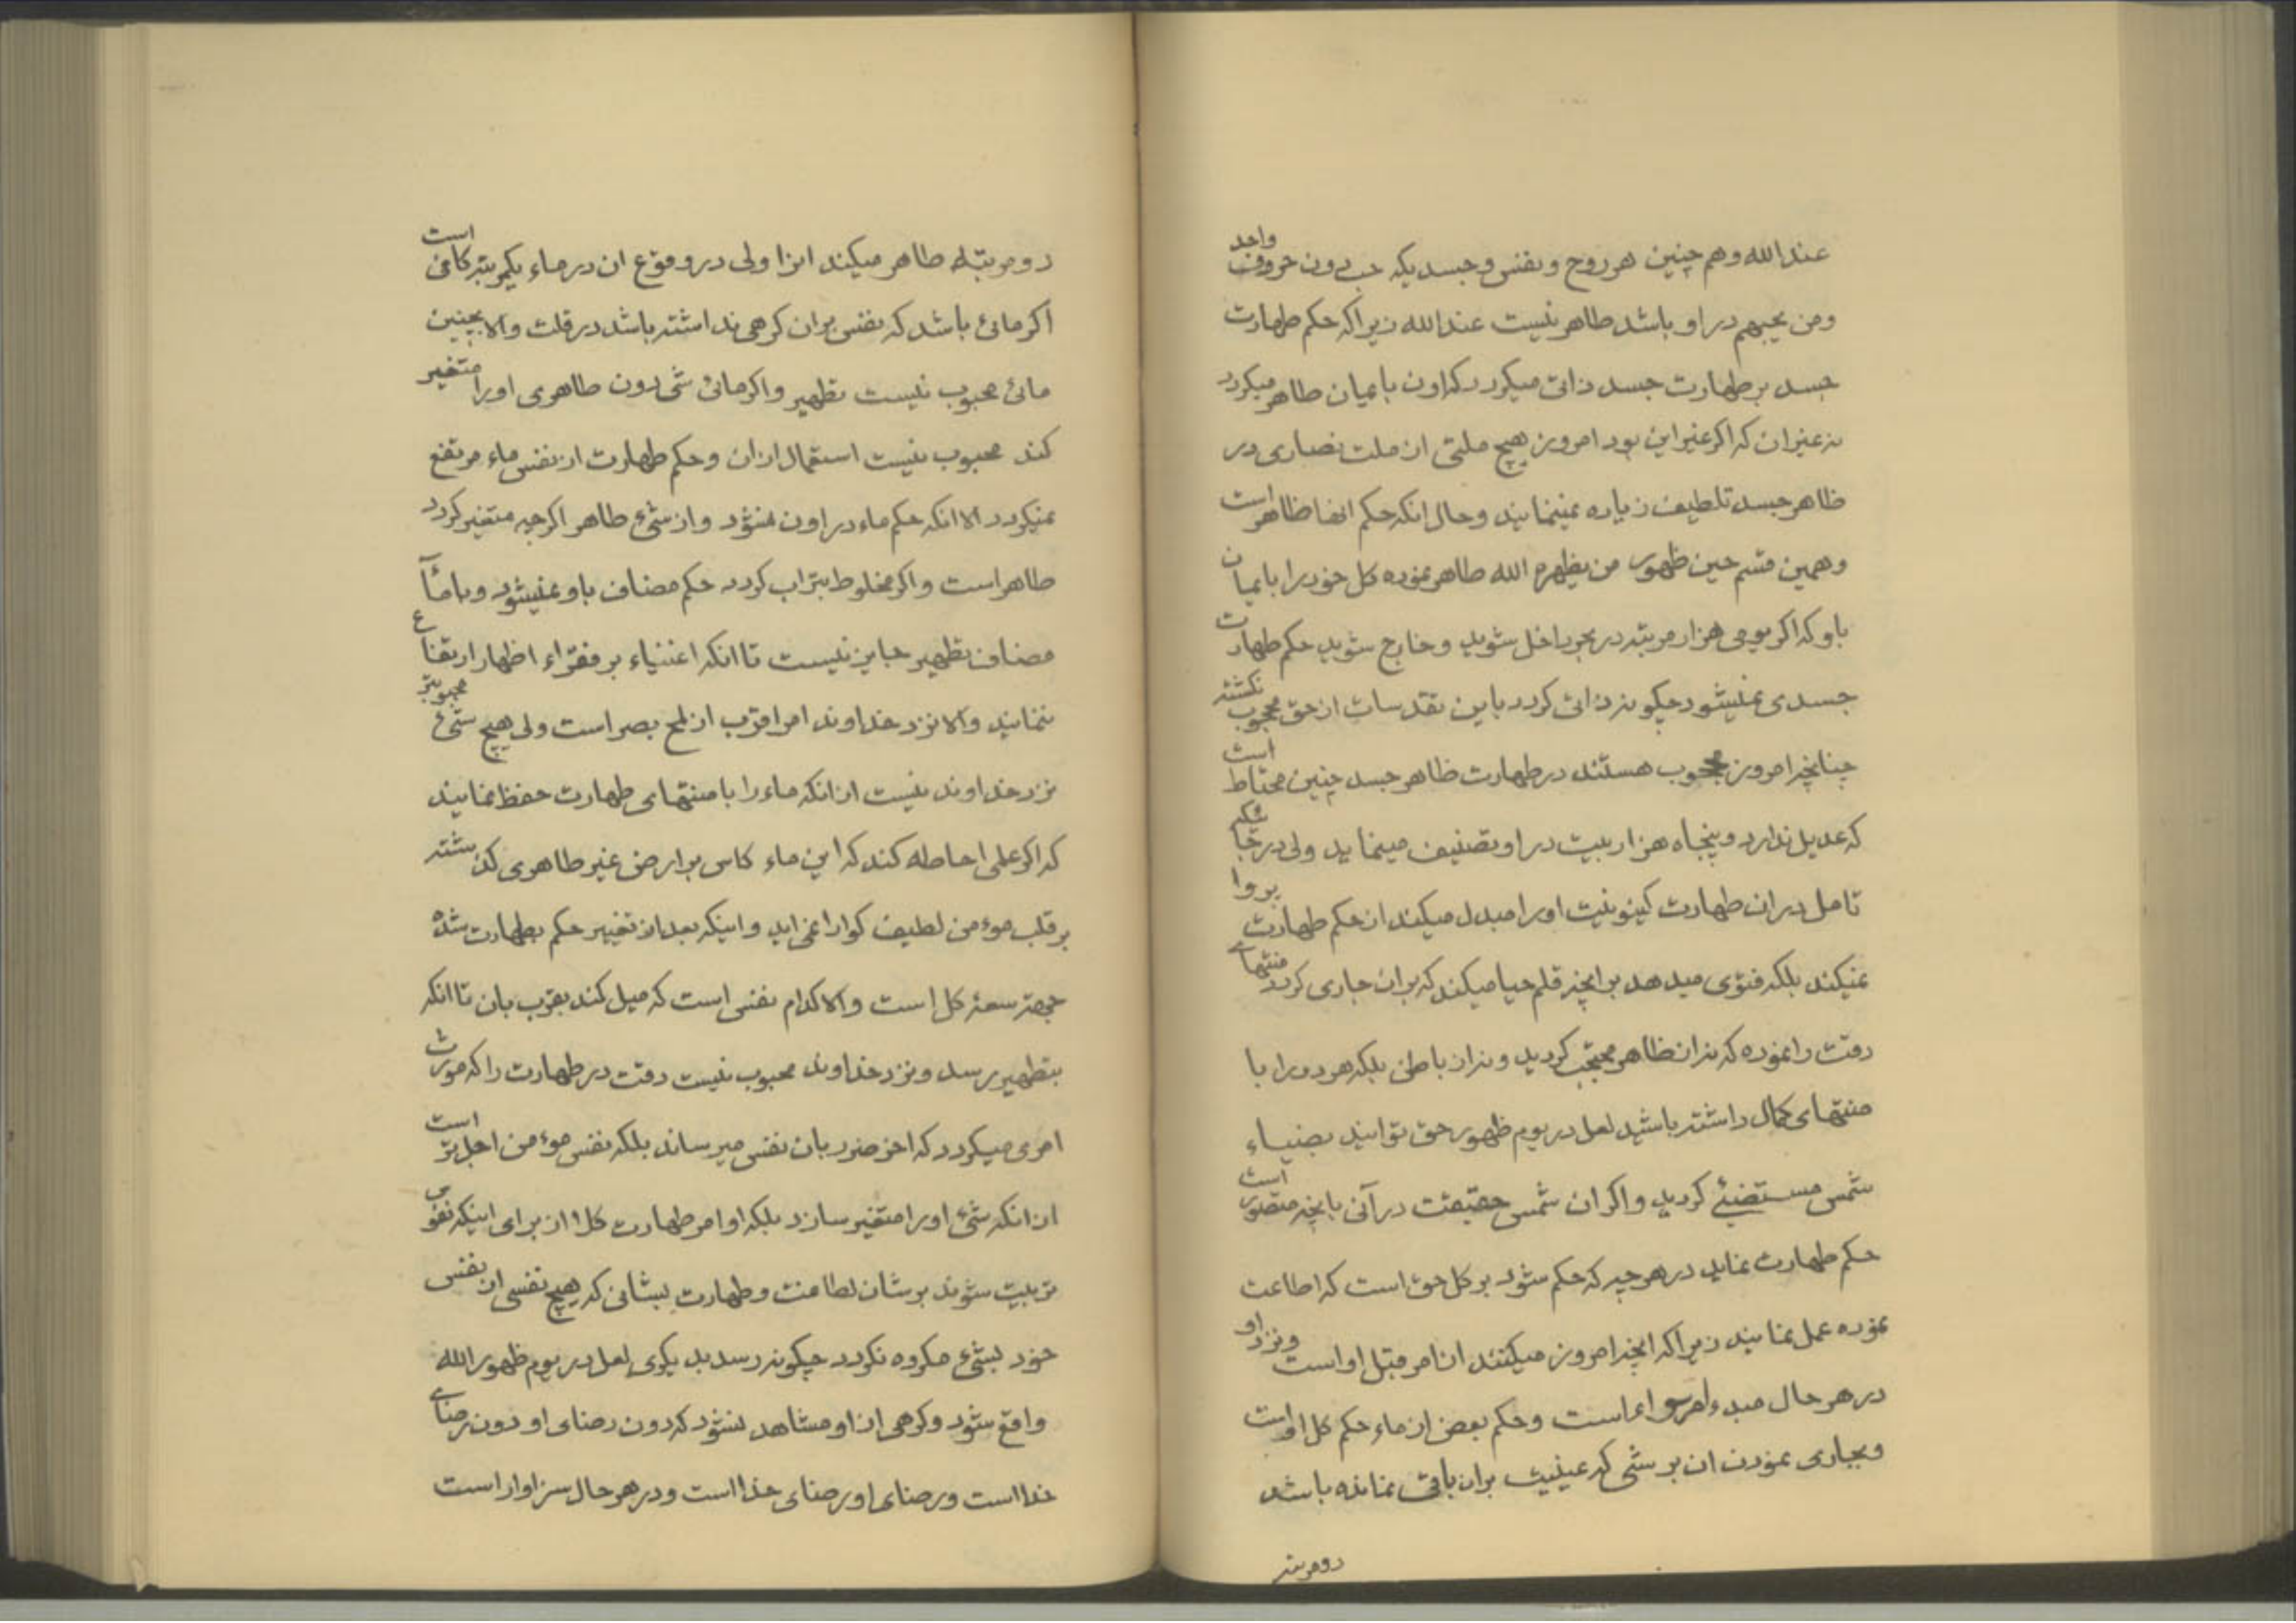 عند الله و هم چنین هر روح و نفس و جسدیکه حب دون حروف واحد
و من یحبهم در او باشد طاهر نیست عند الله زیرا که حکم طهارت
جسد بر طهارت جسد ذاتی میگردد که اون بایمان طاهر میگردد
نه غیر ان که اکر غیر این بود امروز هیچ ملتی از ملت نصاری در
ظاهر جسد تلطیف زیاده نمینمایند و حال انکه حکم انها ظاهر است
و همین قسم حین ظهور من یظهره الله طاهر نموده کل خود را بایمان
باو که اکر یومی هزار مرتبه در بحر داخل شوید و خارج شوید حکم طهارت
جسدی نمیشود چکونه ذاتی کردد باین تقدسات از حق محجوب نکشته
چنانچه امروز محجوب هستند در طهارت ظاهر جسد چنین محتاط است
که عدیل ندارد و پنجاه هزار بیت در او تصنیف مینماید ولی در
تامل در ان طهارت کینونیت اورا مبدل میکند از حکم طهارت پروا
نمیکند بلکه فتوی میدهد بر انچه قلم حیا میکند که بران جاری کردد منتهای
دقت را نموده که نه از ظاهر محتجب کردید و نه از باطن بلکه هر دو را با
منتهای کمال داشته باشید لعل در یوم ظهور حق توانید بضیاء
شمس مستضیئ کردید و اکر ان شمس حقیقت در آنی بانچه متصور است
حکم طهارت نماید در هر چیز که حکم شود بر کل حق است که اطاعت
نموده عمل نمایند زیرا که انچه امروز میکنند از امر قبل او است و نزد او
در هر حال مبدء امر سواء است و حکم بعض از ماء حکم کل او است
و بجاری نمودن ان بر شئ که عینیت بران باقی نمانده باشد
دو مرتبه
دو مرتبه طاهر میکند انرا ولی در وقوع ان در ماء یکمرتبه کافی است
اکر مائی باشد که نفس بران کرهی نداشته باشد در قلت و الا بچنین
مائی محبوب نیست تطهیر و اکر مائی شئ دون طاهری اورا متغیر
کند محبوب نیست استعمال از ان و حکم طهارت از نفس ماء مرتفع
نمیکردد الا انکه حکم ماء در اون نشود و از شئ طاهر اکر چه متغیر کردد
طاهر است و اکر مخلوط بتراب کردد حکم مضاف باو نمیشود و بامآء
مضاف تطهیر جایز نیست تا انکه اغنیاء بر فقراء اظهار ارتفاع
ننمایند و الا نزد خداوند امر اقرب از لمح بصر است ولی هیچ شئ محبوبتر
نزد خداوند نیست از انکه ماء را با منتهای طهارت حفظ نمایند
که اکر علم احاطه کند که این ماء کاس بر ارض غیر طاهری کذشته
بر قلب موءمن لطیف کوارا نمی اید و اینکه بعد از تغییر حکم بطهارت شده
بجهة سعهٔ کل است و الا کدام نفس است که میل کند بقرب بان تا انکه
بتطهیر رسد و نزد خداوند محبوب نیست دقت در طهارت را که مورث
امری میکردد که اخر ضرر بان نفس میرساند بلکه نفس موءمن اجل تر است
از انکه شئ اورا متغیر سازد بلکه اوامر طهارت کلا از برای اینکه نفوس
تربیت شوند بر شان لطافت و طهارت بشانی که هیچ نفسی از نفس
خود بشئ مکروه نکردد چکونه رسد بدیکری لعل در یوم ظهور الله
واقع شود و کرهی از او مشاهد نشود که دون رضای او دون رضای
خدا است و رضای او رضای خدا است و در هر حال سزاوار است